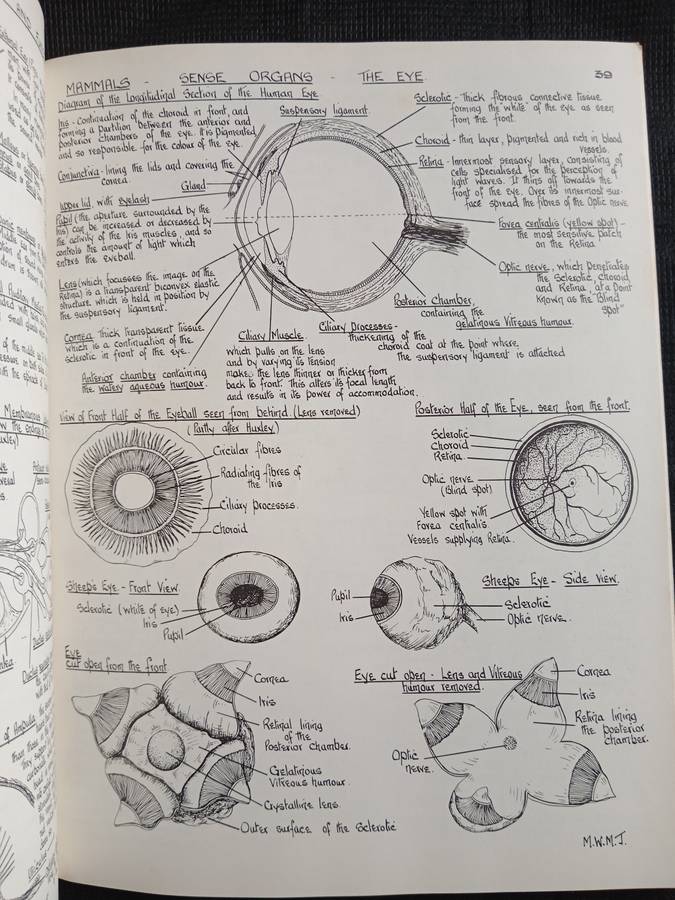 MAMMALS - SENSE ORGANS - THE EYE
39
Diagram of the Longitudinal Section of the Human Eye
Iris - Continuation of the choroid in front, and
forming a partition between the anterior and
posterior chambers of the eye. It is pigmented
and so responsible for the colour of the eye.
Conjunctiva - lining the lids and covering the
cornea.
Gland
Upper lid, with eyelash
Pupil (the aperture surrounded by the
iris) can be increased or decreased by
the activity of the Iris muscles, and so
controls the amount of light which
enters the eyeball.
Lens (which focusses the image on the
Retina) is a transparent biconvex elastic
structure, which is held in position by
the suspensory ligament.
Cornea Thick transparent tissue
which is a continuation of the
sclerotic in front of the eye.
Anterior chamber containing
the watery aqueous humour.
Suspensory ligament.
Ciliary Muscle.
which pulls on the lens
and by varying its tension
makes the lens thinner or thicker from
back to front. This alters its focal length
and results in its power of accommodation.
Ciliary Processes -
thickening of the
choroid coat at the point where
the suspensory ligament is attached
Sclerotic - Thick fibrous connective tissue
forming the "white" of the eye as seen
from the front.
Choroid - thin layer, pigmented and rich in blood
vessels.
Retina - Innermost sensory layer, consisting of
cells specialised for the perception of
light waves. It thins off towards the
front of the eye. Over its innermost sur-
face spread the fibres of the Optic nerve
Fovea centralis (yellow spot) -
the most sensitive patch
on the Retina
Optic nerve, which penetrates
the Sclerotic, Choroid
and Retina, at a point
known as the "Blind
spot"
Posterior Chamber,
containing the
gelatinous Vitreous humour.
View of Front Half of the Eyeball seen from behind. (Lens removed)
(Partly after Huxley)
Circular fibres
Radiating fibres of
the Iris
Ciliary processes.
Choroid
Posterior Half of the Eye, seen from the front.
Sclerotic
Choroid
Retina
Optic nerve
(Blind spot)
Yellow spot with
Fovea centralis
Vessels supplying Retina.
Sheep's Eye - Front View.
Sclerotic (white of eye)
Iris
Pupil
Sheep's Eye - Side view.
Pupil
Iris
Sclerotic
Optic nerve.
Eye
cut open from the front
Cornea
Iris
Retinal lining
of the
Posterior chamber.
Gelatinous
Vitreous humour.
Crystalline lens.
Outer surface of the Sclerotic
Eye cut open - Lens and Vitreous
humour removed.
Cornea
Iris
Retina lining
the posterior
chamber.
Optic
nerve.
M.W.M.J.